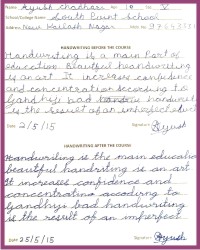 Name : Ayush Chadhari Age : 10 Std. : V
School/College Name : South Point School
Address : New Kailash Nagar
HANDWRITING BEFORE THE COURSE
Handwriting is a main Part of
education. Beautiful handwriting
is an art. It increases confidence
and concentration according to
Gandhiji bad handwriting
is the result of an imperfect
Date : 2/5/15 Signature : Ayush
HANDWRITING AFTER THE COURSE
Handwriting is the main education
beautiful handwriting is an art
It increases confidence and
concentration according to
Gandhiji bad handwriting
is the result of an imperfect
Date : 25/5/15 Signature : Ayush